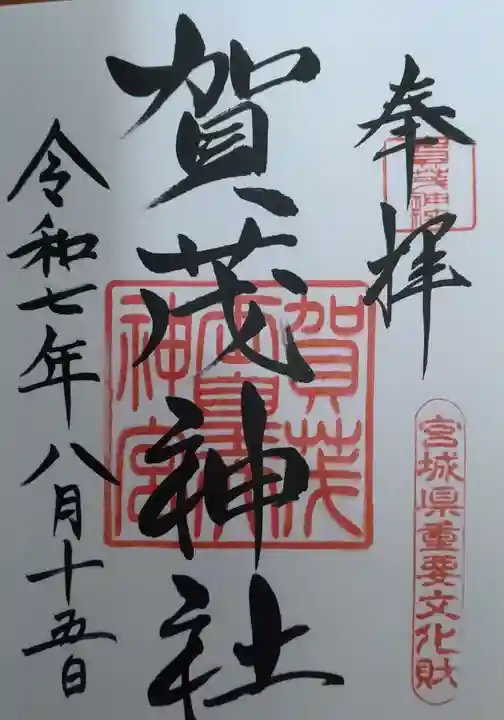 奉拝
賀茂神社
宮城県重要文化財
令和七年八月十五日